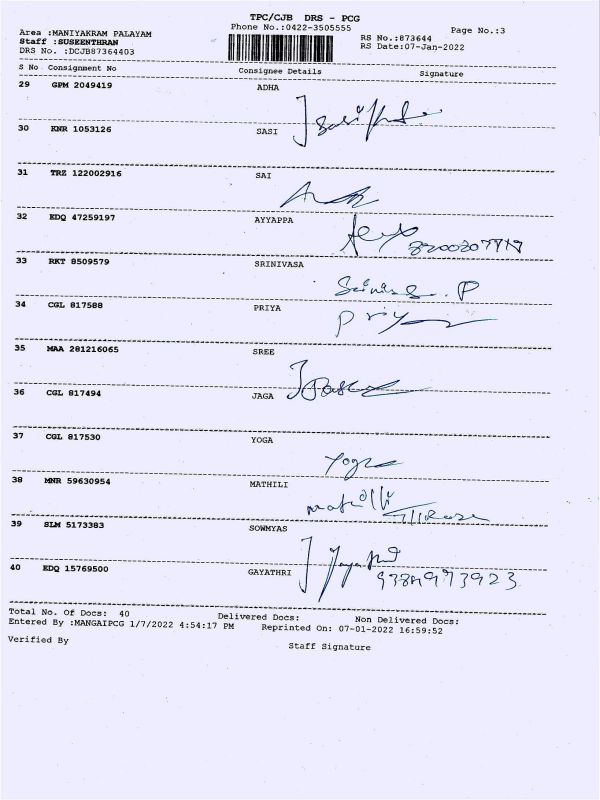 TPC/CJB DRS - PCG
Phone No.:0422-3505555
Page No.:3
Area :MANIYAKRAM PALAYAM
Staff :SUSEENTHRAN
DRS No. :DCJB87364403
RS No.:873644
RS Date:07-Jan-2022
S No Consignment No Consignee Details Signature
29 GPM 2049419 ADHA
30 KNR 1053126 SASI
31 TRZ 122002916 SAI
32 EDQ 47259197 AYYAPPA
33 RKT 8509579 SRINIVASA
34 CGL 817588 PRIYA
Priya
35 MAA 281216065 SREE
36 CGL 817494 JAGA
37 CGL 817530 YOGA
Yoga
38 MNR 59630954 MATHILI
39 SLM 5173383 SOWMYAS
40 EDQ 15769500 GAYATHRI
Total No. Of Docs: 40 Delivered Docs: Non Delivered Docs:
Entered By :MANGAIPCG 1/7/2022 4:54:17 PM Reprinted On: 07-01-2022 16:59:52
Verified By Staff Signature